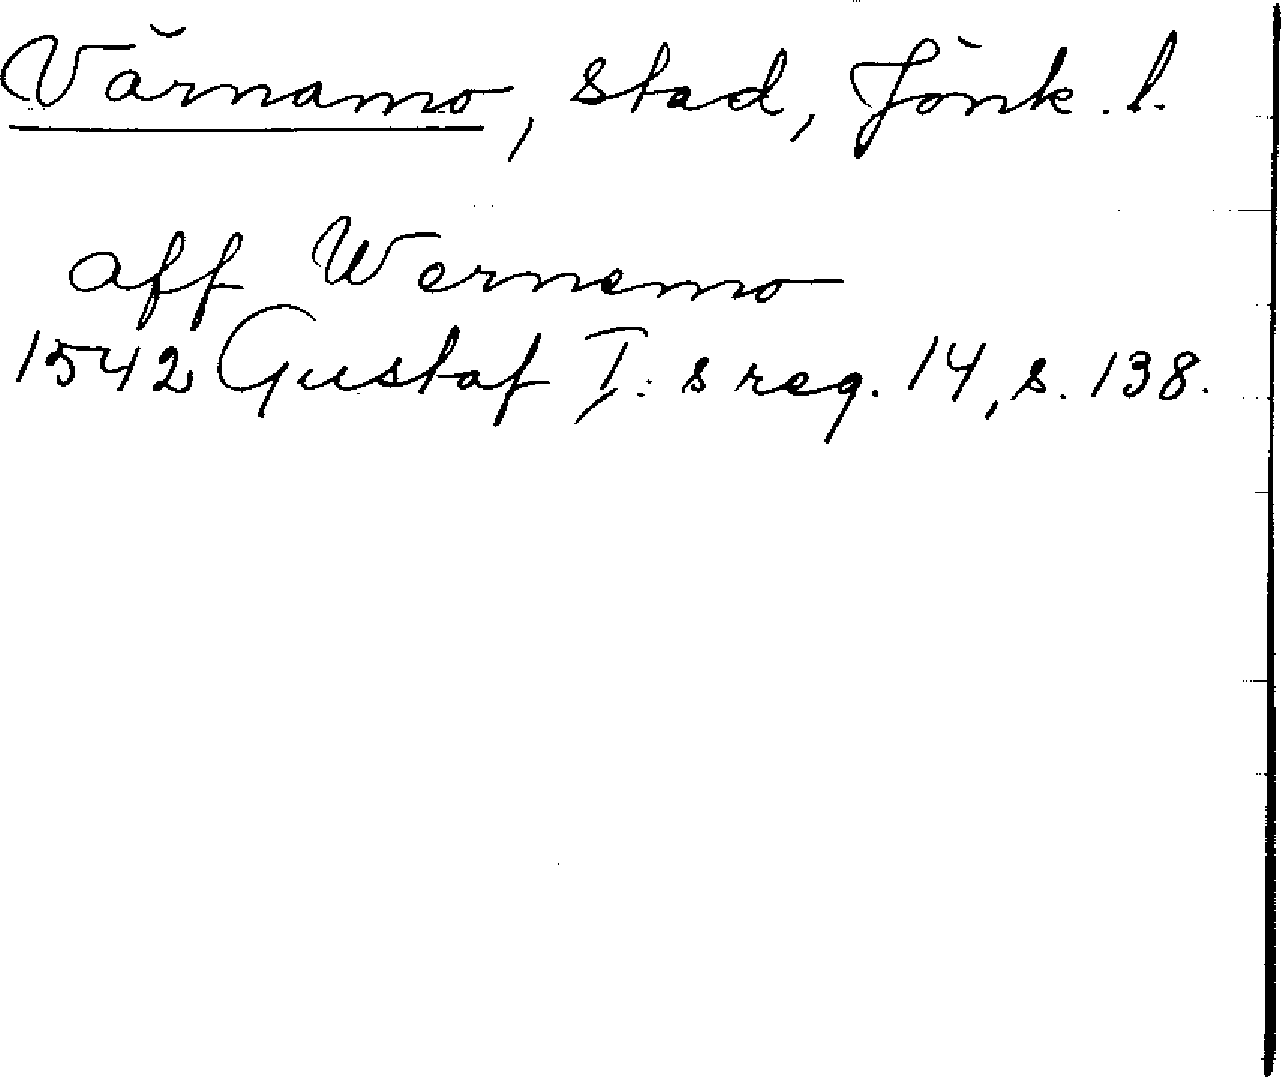 Värnamo, stad, Jönk. l.
aff Wernemo
1542 Gustaf I:s reg. 14, s. 138.